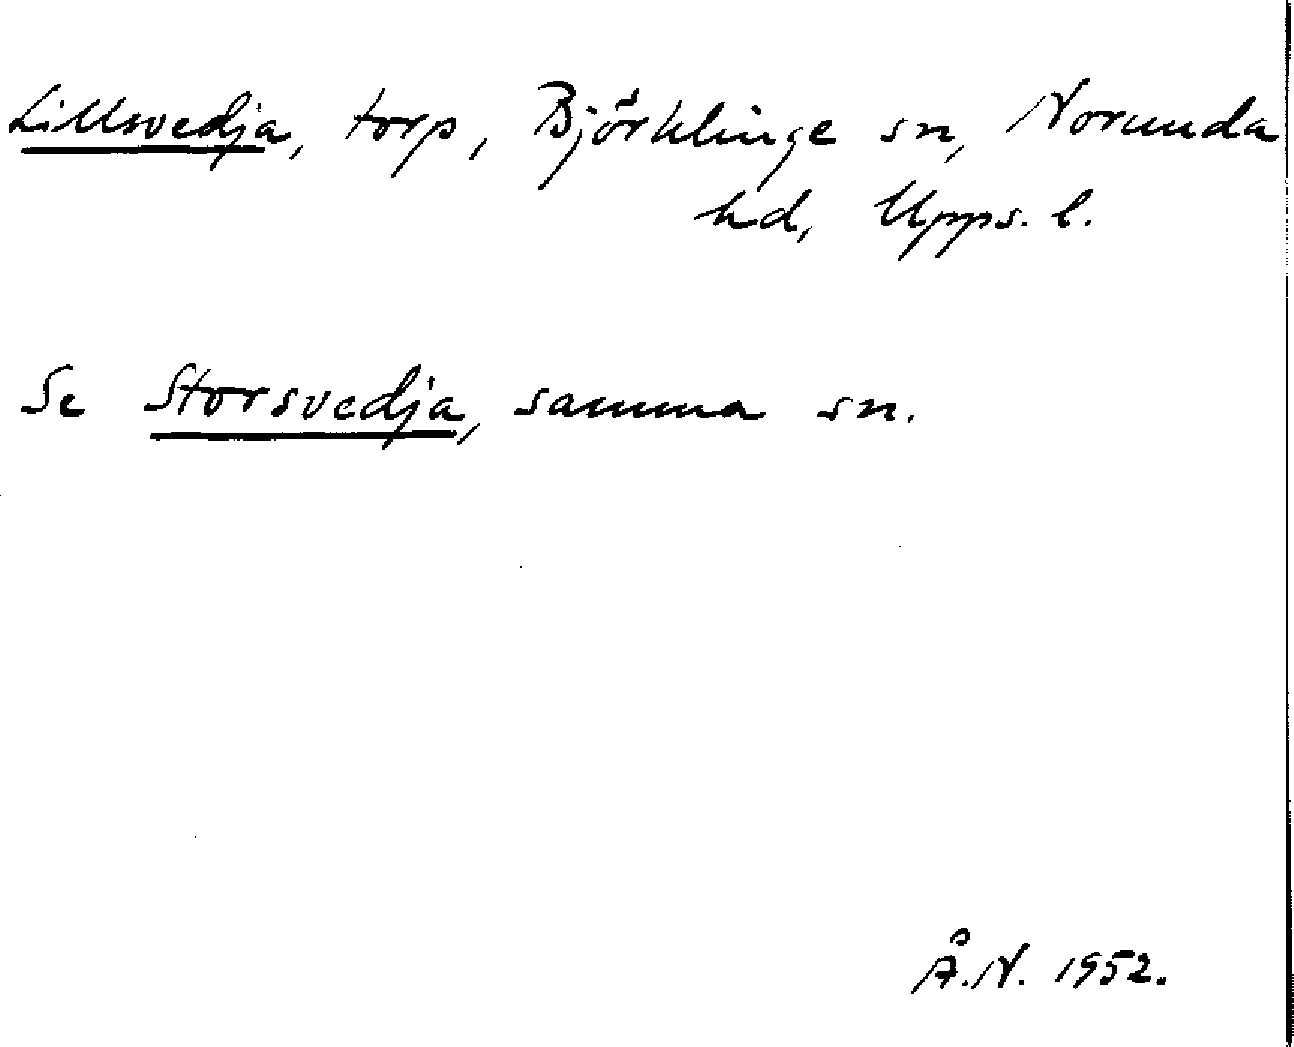 Lillsvedja, torp, Björklinge sn, Norunda
hd, Upps. l.
Se Storsvedja, samma sn.
Å.N. 1952.